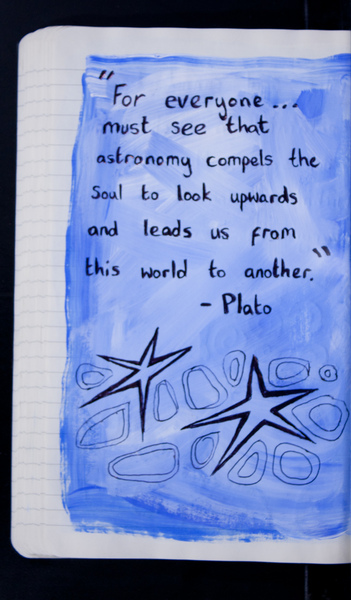 "For everyone...
must see that
astronomy compels the
soul to look upwards
and leads us from
this world to another."
- Plato